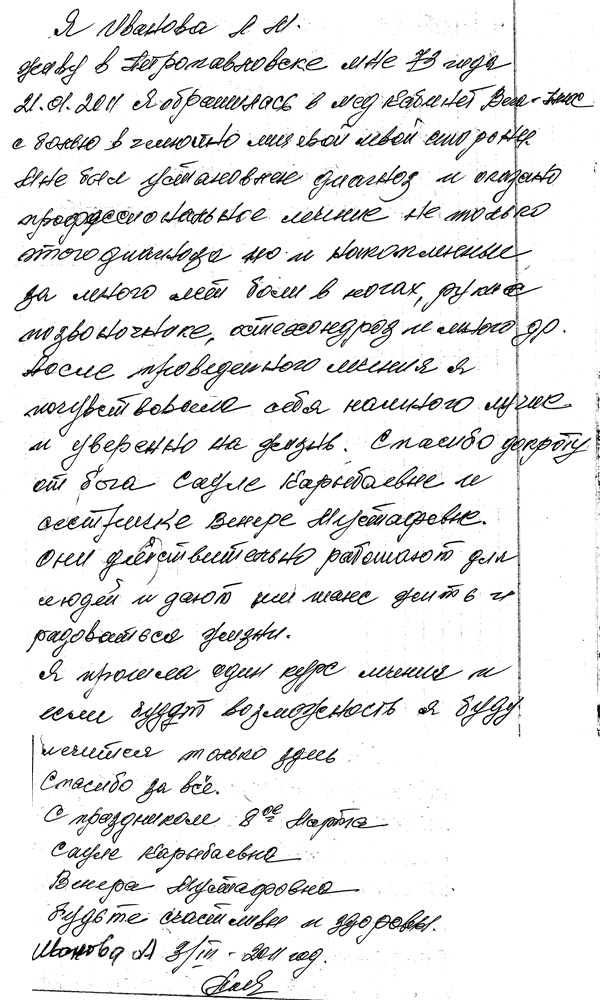 Я Иванова А М.
живу в Петропавловске мне 73 года
21.01.2011 Я обратилась в мед кабинет Вега-
с болью в челюстно лицевой левой стороне.
Мне был установлен диагноз и оказано
профессиональное лечение не только
этого диагноза но и накопленные
за много лет боли в ногах, руках
позвоночнике, остехондроз и много др.
После проведенного лечения я
почувствовала себя намного лучше
и уверенно на жизнь. Спасибо доктору
от бога Сауле Карибаевне и
сестричке Венере Мустафовне.
Они действительно работают для
людей и дают им шанс жить и
радоваться жизни.
Я прошла один курс лечения и
если будет возможность я буду
лечится только здесь
Спасибо за всё.
С праздником 8ое Марта
Сауле Карибаевна
Венера Мустафовна
будьте счастливы и здоровы.
Иванова А 3/III-2011 год.